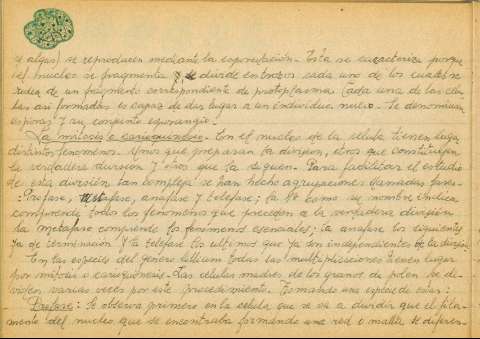 y algas) se reproducen mediante la esporulación. Esta se caracteriza porque
el nucleo se fragmenta y se divide en trozos cada uno de los cuales se
rodea de un fragmento correspondiente de protoplasma Cada una de las celu-
las asi formadas es capaz de dar lugar a un individuo nuevo. Se denominan
esporas y su conjunto esporangio.
La mitosis o cariquinesis. En el nucleo de la célula tienen lugar
distintos fenomenos. Unos que preparan la division, otros que constituyen
la verdadera division y otros que la siguen. Para facilitar el estudio
de esta división tan compleja se han hecho agrupaciones llamadas fases.
Profase, metafase, anafase y telefase; la 1ª como su nombre indica
comprende todos los fenomenos que preceden a la verdadera division
la metafase comprende los fenómenos esenciales; la anafase los siguientes
ya de terminación y la telefase los ultimos que ya son independientes de la division
En las especies del genero Lilium todas las multiplicaciones tienen lugar
por mitosis o cariquinesis. Las células madres de los granos de polen se di-
viden varias veces por este procedimiento. Formando una especie de
Profase: Se observa primero en la celula que se va a dividir que el fila-
mento del nucleo que se encontraba formando una red o malla se diferen-